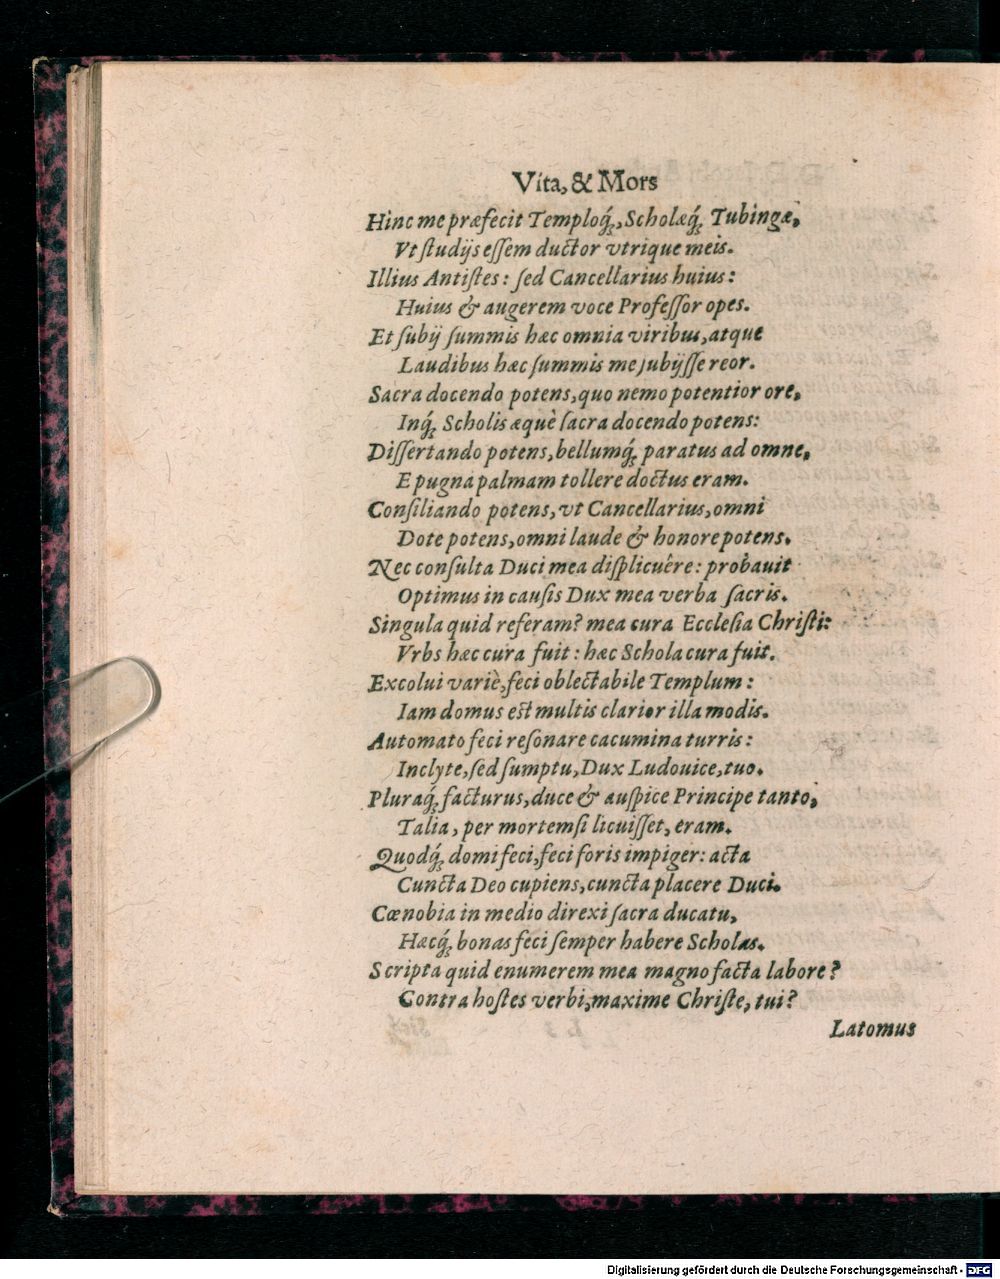 Vita, & Mors
Hinc me præfecit Temploq́;, Scholæq́; Tubingæ,
Vt ſtudijs eſſem ductor vtrique meis.
Illius Antiſtes: ſed Cancellarius huius:
Huius & augerem voce Profeſſor opes.
Et ſubij ſummis hæc omnia viribus, atque
Laudibus hæc ſummis me ſubijſſe reor.
Sacra docendo potens, quo nemo potentior ore,
Inq́; Scholis æquè ſacra docendo potens:
Diſſertando potens, bellumq́; paratus ad omne,
E pugna palmam tollere doctus eram.
Conſiliando potens, vt Cancellarius, omni
Dote potens, omni laude & honore potens.
Nec conſulta Duci mea diſplicuêre: probauit
Optimus in cauſis Dux mea verba ſacris.
Singula quid referam? mea cura Eccleſia Chriſti:
Vrbs hæc cura fuit: hæc Schola cura fuit.
Excolui variè, feci oblectabile Templum:
Iam domus eſt multis clarior illa modis.
Automato feci reſonare cacumina turris:
Inclyte, ſed ſumptu, Dux Ludouice, tuo.
Pluraq́; facturus, duce & auſpice Principe tanto,
Talia, per mortem ſi licuiſſet, eram.
Quodq́; domi feci, feci foris impiger: acta
Cuncta Deo cupiens, cuncta placere Duci.
Cœnobia in medio direxi ſacra ducatu,
Hæcq́; bonas feci ſemper habere Scholas.
Scripta quid enumerem mea magno facta labore?
Contra hoſtes verbi, maxime Chriſte, tui?
Latomus
Digitalisierung gefördert durch die Deutsche Forschungsgemeinschaft - DFG